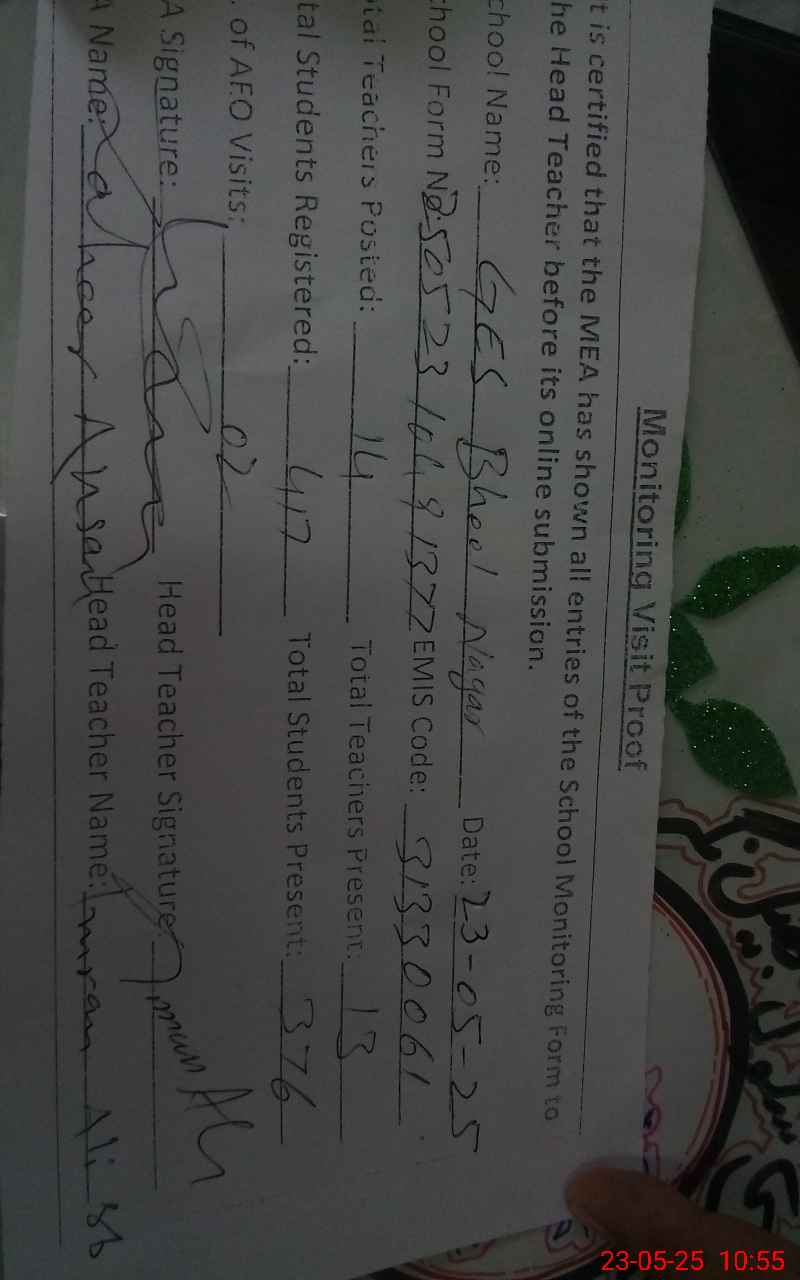 Monitoring Visit Proof
t is certified that the MEA has shown all entries of the School Monitoring Form to
he Head Teacher before its online submission.
chool Name: GES Bheel Nagar Date: 23-05-25
chool Form No 250523 1372 EMIS Code: 31330061
otal Teachers Posted: 14 Total Teachers Present: 13
tal Students Registered: 417 Total Students Present: 376
. of AEO Visits: 02
A Signature: Head Teacher Signature: Imran Ali
A Name: Zaheer Ahsan Head Teacher Name: Imran Ali
23-05-25 10:55